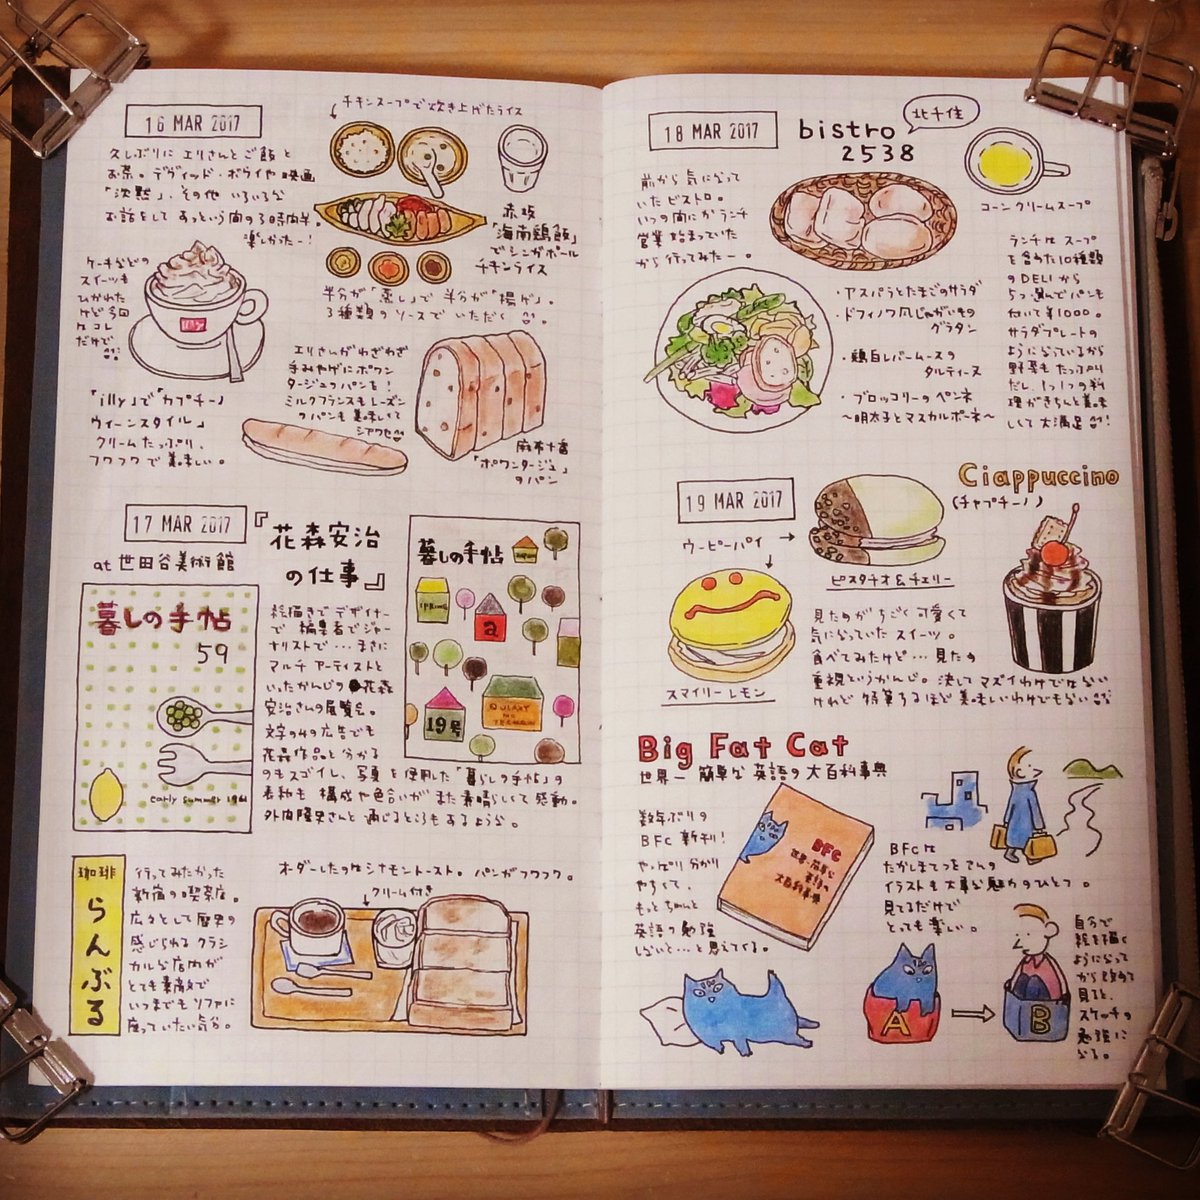 16 MAR 2017
久しぶりに エリさんと ご飯 と
お茶。デヴィッド・ボウイや 映画
「沈黙」、その他 いろいろな
お話をして あっという間の3時間半。
楽しかったー!
チキンスープで 炊き上げたライス
赤坂
「海南鶏飯」
で シンガポール
チキンライス
半分が「蒸し」で 半分が「揚げ」。
3種類の ソースで いただく。
ケーキなどの
スイーツも
ひかれた
けど 今回
は コレ
だけで
illy
「illy」で「カプチーノ
ウィーンスタイル」
クリーム たっぷり、
フワフワ で 美味しい。
エリさんが わざわざ
手みやげに ポワン
タージュの パンを!
ミルクフランスも レーズン
の パンも 美味しくて
シアワセ
麻布十番
「ポワンタージュ」
の パン
17 MAR 2017
at 世田谷美術館
『花森安治
の仕事』
暮しの手帖
59
early summer 1961
暮しの手帖
a
19号
絵描きで デザイナー
で 編集者で ジャー
ナリストで … まさに
マルチ アーティストと
いった かんじの 花森
安治さんの 展覧会。
文字のみの 広告でも
花森作品と 分かる
のも スゴイし、写真 を 使用した「暮らしの手帖」の
表紙も 構成や色合いが また 素晴らしくて 感動。
外内隆史さんと 通じるところも あるような。
珈琲
らんぶる
行ってみたかった
新宿の喫茶店。
広々として 歴史の
感じられる クラシ
カルな 店内が
とても 素敵で
いつまでも ソファに
座っていたい 気分。
オーダーしたのは シナモントースト。パンが フワフワ。
クリーム付き
18 MAR 2017
bistro
2538
北千住
前から 気になって
いた ビストロ。
いつの間にか ランチ
営業 始まっていた
から 行ってみたー。
コーンクリームスープ
・アスパラとたまごのサラダ
・ドフィノワ風じゃがいもの
グラタン
・鶏白レバームースの
タルティーヌ
・ブロッコリーの ペンネ
〜明太子とマスカルポーネ〜
ランチは スープ
を 含めた 10種類
の DELI から
5つ 選んで パンも
付いて ¥1000。
サラダプレートの
ように なっているから
野菜も たっぷり
だし、1つ1つの 料
理が きちんと 美味
しくて 大満足
19 MAR 2017
ウーピーパイ
ピスタチオ & チェリー
スマイリー レモン
Ciappuccino
(チャプチーノ)
見ためが すごく 可愛くて
気に なっていた スイーツ。
食べてみたけど … 見ため
重視 という かんじ。決して マズイわけではない
けれど 特筆するほど 美味しいわけでもない
Big Fat Cat
世界一 簡単な 英語の 大百科事典
数年ぶりの
BFC 新刊!
やっぱり 分かり
やすくて、
もっと ちゃんと
英語の 勉強
しないと … と 思えてくる。
BFC
世界一簡単な
英語の
大百科事典
BFC は
たかしまてつをさんの
イラストも 大事な 魅力の ひとつ。
見てるだけで
とっても 楽しい。
A
B
自分で
絵を描く
ように なって
から 改めて
見ると、
スケッチの
勉強に
なる。